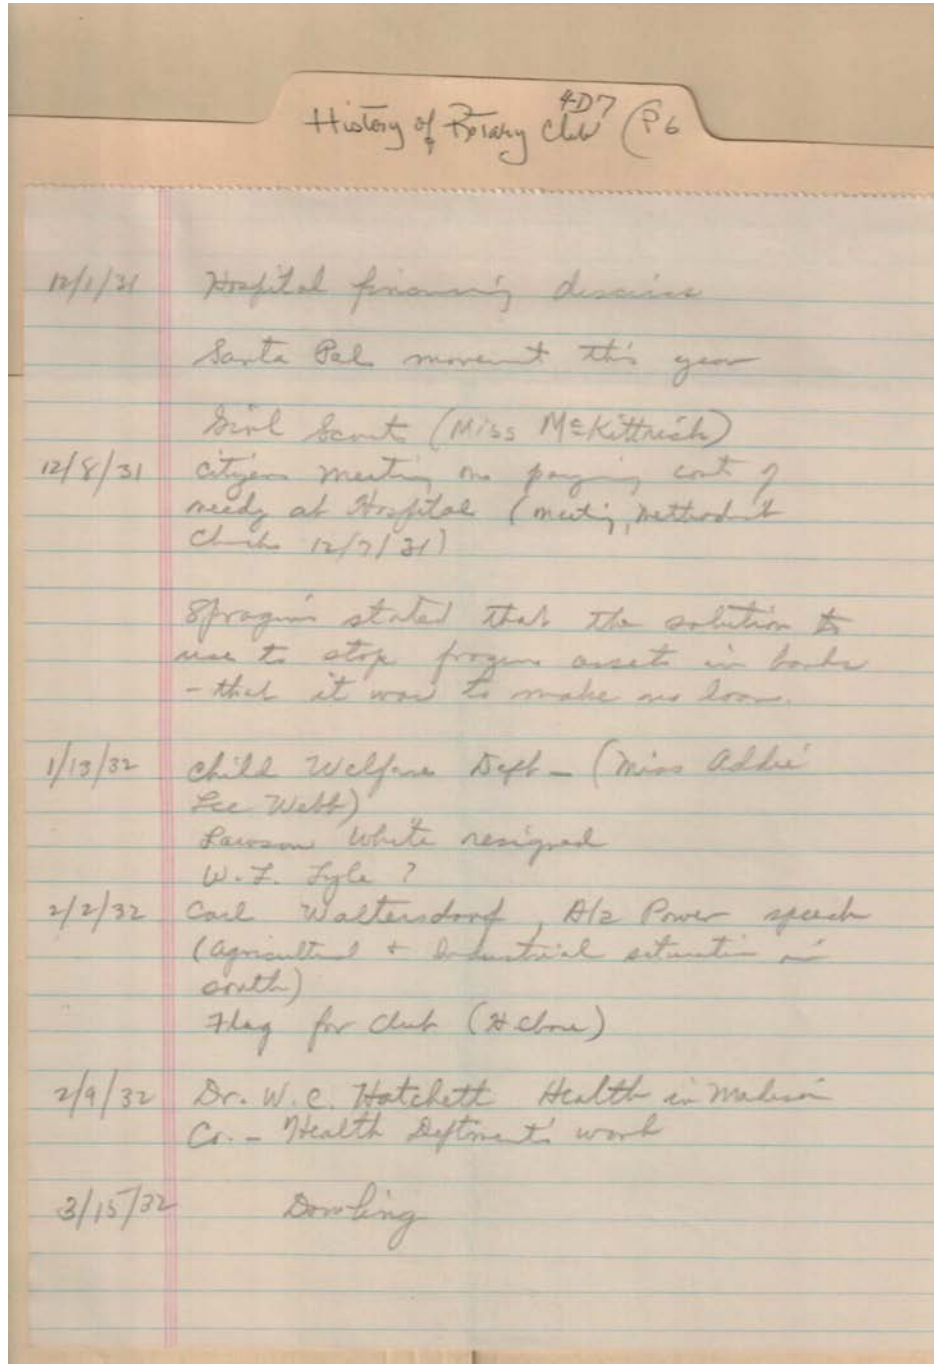 4-D7
History of Rotary Club (P6
12/1/31 Hospital financing discuss
Santa Pal movement this year
Girl Scouts (Miss McKittrick)
12/8/31 Citizens meeting on paying cost of
needy at Hospital (meeting, Methodist
Church 12/7/31)
Spragins stated that the solution to
use to stop frozen assets in banks
- that it was to make no loan.
1/13/32 Child Welfare Dept - (Miss Addie
Lee Webb)
Lawson White resigned
W. F. Lyle ?
2/2/32 Carl Waltersdorf, Ala Power speech
(Agricultural + Industrial situation in
south)
Flag for Club (H Chase)
2/9/32 Dr. W. C. Hatchett Health in Madison
Co. - Health Deptment's work
3/15/32 Dowling